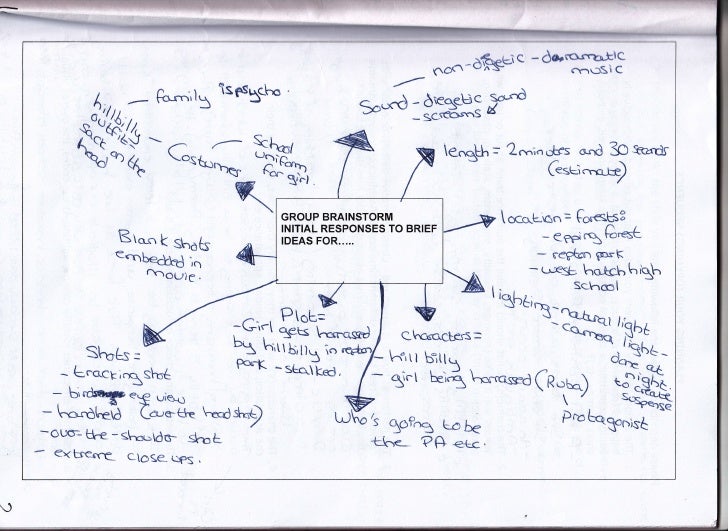 GROUP BRAINSTORM
INITIAL RESPONSES TO BRIEF
IDEAS FOR.....
non-diegetic - dramatic
music
Sound - diegetic sound
- screams
length = 2 minutes and 30 seconds
(estimate)
location = forests:
- epping forest
- repton park
- west hatch high
school
lighting - natural light
- camera light -
done at
night.
to create
suspense
characters =
- hill billy
- girl being harrassed (Ruba)
protagonist
Who's going to be
the PA etc.
Plot =
- Girl gets harrassed
by hillbilly in repton
park - stalked.
Shots =
- tracking shot
- birds eye view
- handheld (over the head shot)
- over-the-shoulder shot
- extreme close ups.
Blank shots
embedded in
movie.
Costumes
School
uniform
for girl.
family is psycho.
hillbilly
outfit -
sack on the
head